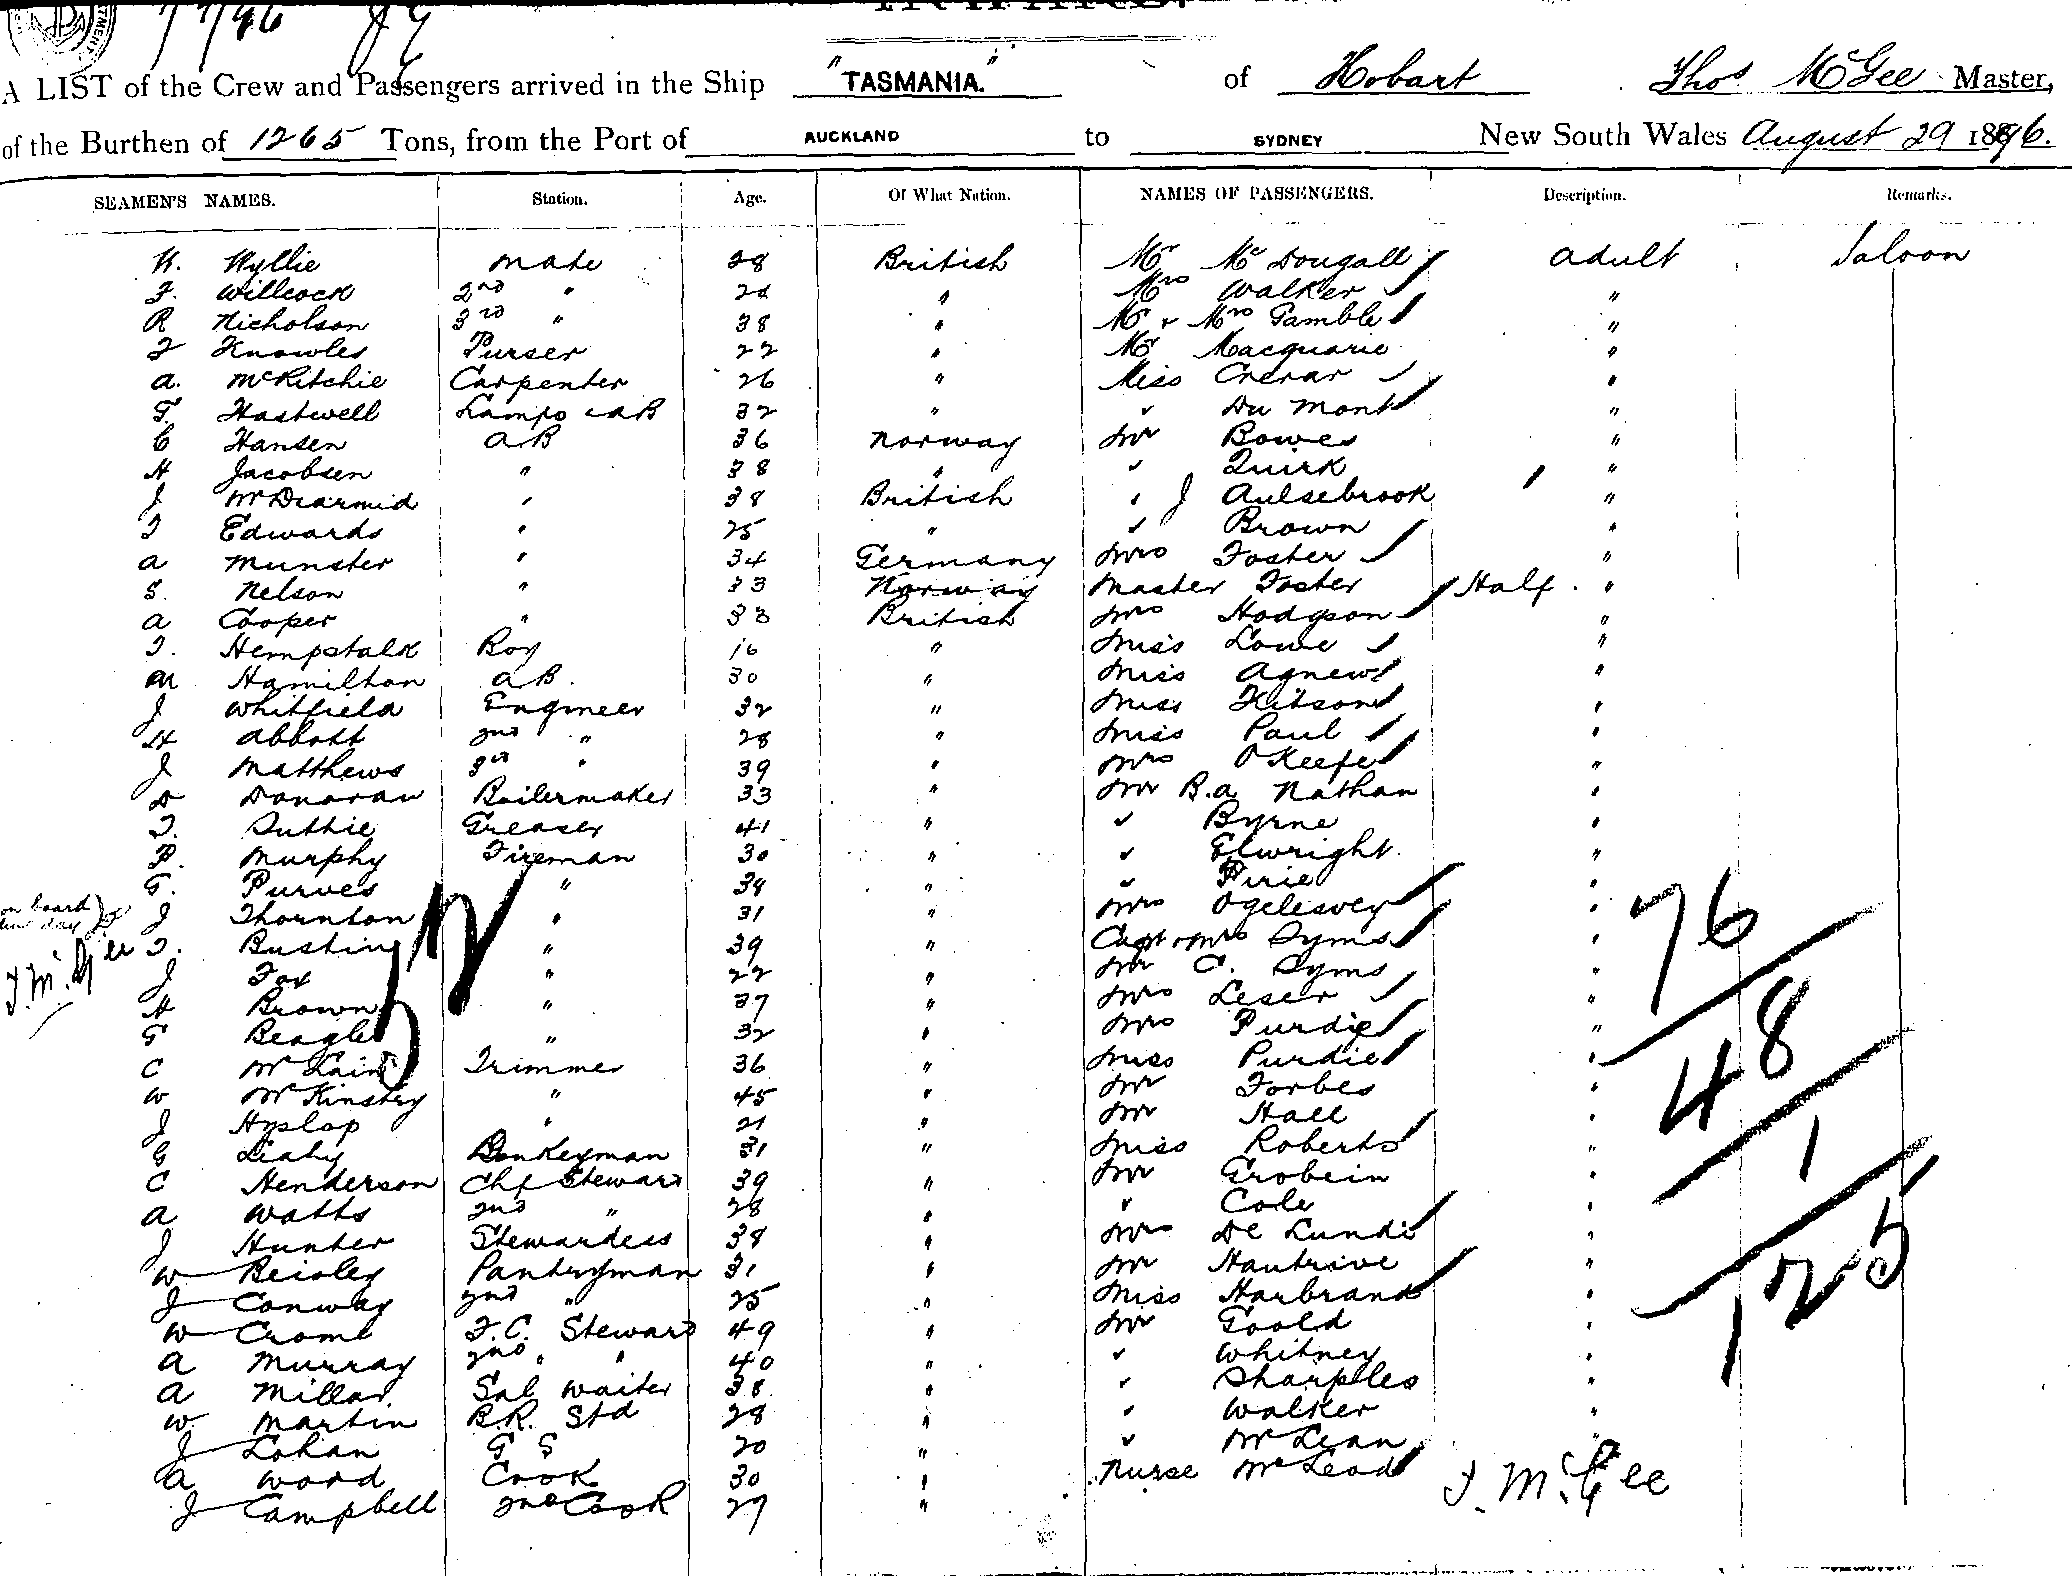 7/7/96 J G
A LIST of the Crew and Passengers arrived in the Ship "TASMANIA." of Hobart Thos McGee Master,
of the Burthen of 1265 Tons, from the Port of AUCKLAND to SYDNEY New South Wales August 29 1896.
SEAMEN'S NAMES. Station. Age. Of What Nation. NAMES OF PASSENGERS. Description. Remarks.
W. Wyllie mate 28 British Mr McDougall adult Saloon
F. Willcock 2nd " 24 " Mrs Walker "
R Nicholson 3rd " 38 " Mr & Mrs Gamble "
F Knowles Purser 22 " Mr Macquarie "
a. McRitchie Carpenter 26 " Miss Crerar "
G. Hastwell Lamps & aB 32 " " Du Mont "
C Hansen aB 36 Norway Mr Bowes "
H Jacobsen " 38 " " Quirk "
J McDiarmid " 38 British " J Aulsebrook "
T Edwards " 25 " " Brown "
a Munster " 34 Germany Mrs Foster "
S. Nelson " 33 Norway Master Foster Half "
a Cooper " 33 British Mrs Hodgson "
T. Hempstalk Boy 16 " Miss Lowe "
M Hamilton aB. 30 " Miss Agnew "
J Whitfield Engineer 32 " Miss Kitson "
H abbott 2nd " 28 " Miss Paul "
J Matthews 3rd " 39 " Mrs O'Keefe "
D Donovan Boilermaker 33 " Mr B.a Nathan "
T. Duthie Greaser 41 " " Byrne "
P. Murphy Fireman 30 " " Elwright "
G. Purves " 34 " " Pirie "
on board J Thornton " 31 " Mrs Ogelesvey "
T. McGee T. Busting " 39 " Capt & Mrs Syms "
J Fox " 22 " Mr C. Syms "
H Brown " 37 " Mrs Leser "
G Beagle " 32 " Mrs Purdie "
C McLain Trimmer 36 " Miss Purdie "
W McKinstry " 45 " Mr Forbes "
J Hyslop " 21 " Mr Hall "
G Leahy Donkeyman 31 " Miss Roberts "
C Henderson Chf Steward 39 " Mr Grobein "
a Watts 2nd " 28 " " Cole "
J Hunter Stewardess 38 " Mrs De Lundi "
W Beisley Pantryman 31 " Mr Hautrive "
J Conway 2nd " 25 " Miss Harbrand "
W Crome F.C. Steward 49 " Mr Goold "
a Murray 2nd " " 40 " " Whitney "
a Millar Sal waiter 38 " " Sharples "
W Martin B.R. Std 28 " " Walker "
J Lohan G S 20 " " McLean "
a Word Cook 30 " Nurse McLeod
J Campbell 2nd Cook 27 "
T. McGee
52
76
48
1
125